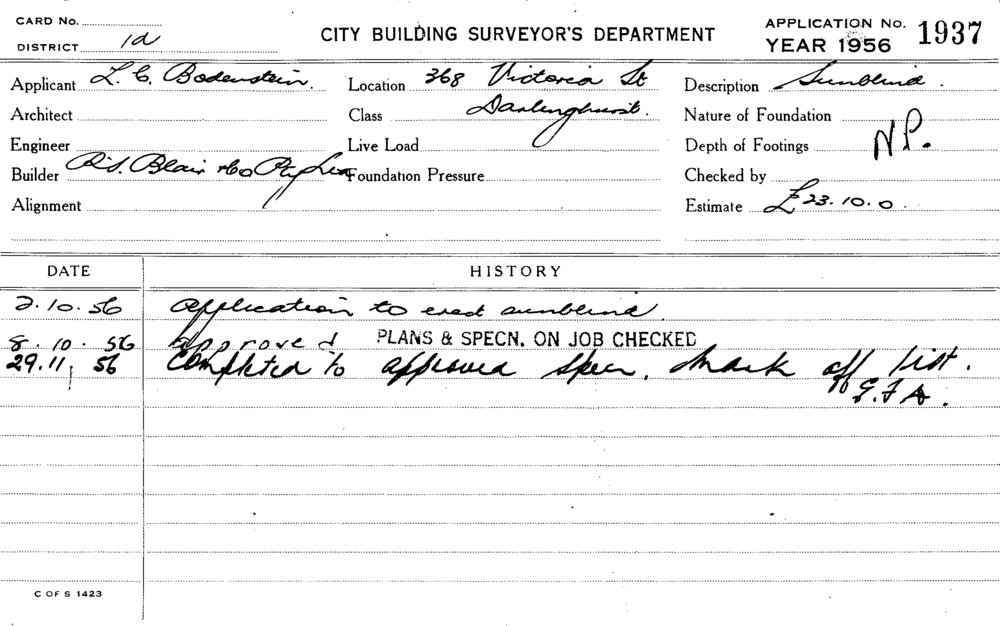 CARD No.
DISTRICT 1d
CITY BUILDING SURVEYOR'S DEPARTMENT
APPLICATION No. 1937
YEAR 1956
Applicant L. C. Bodenstein.
Location 368 Victoria St
Description Sunblind.
Architect
Class Darlinghurst.
Nature of Foundation
Engineer
Live Load
Depth of Footings N.P.
Builder R.S. Blair & Co Pty
Foundation Pressure
Checked by
Alignment
Estimate £23.10.0.
DATE
HISTORY
2.10.56 Application to erect sunblind.
8.10.56 approved PLANS & SPECN. ON JOB CHECKED
29.11.56 Completed to approved specn. Mark off list.
C OF S 1423